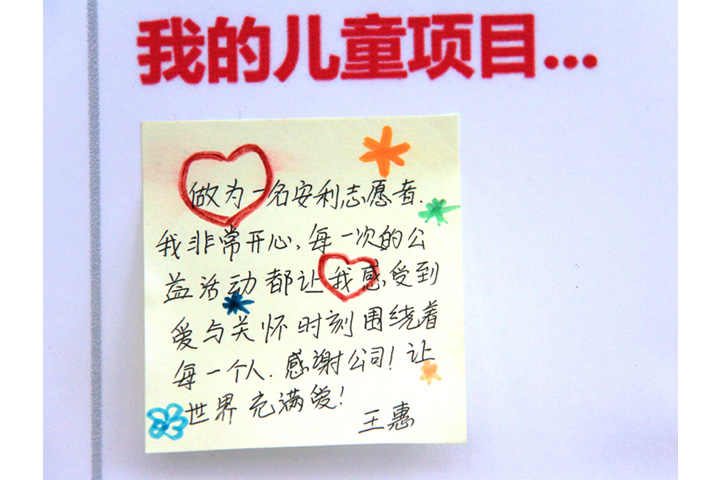 我的儿童项目...
做为一名安利志愿者.
我非常开心,每一次的公
益活动都让我感受到
爱与关怀时刻围绕着
每一个人.感谢公司!让
世界充满爱!
王惠